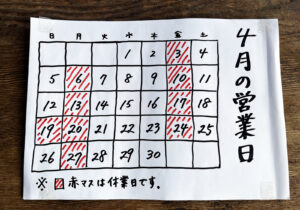 4月の営業日
日 月 火 水 木 金 土
1 2 3 4
5 6 7 8 9 10 11
12 13 14 15 16 17 18
19 20 21 22 23 24 25
26 27 28 29 30
※ 赤マスは休業日です。